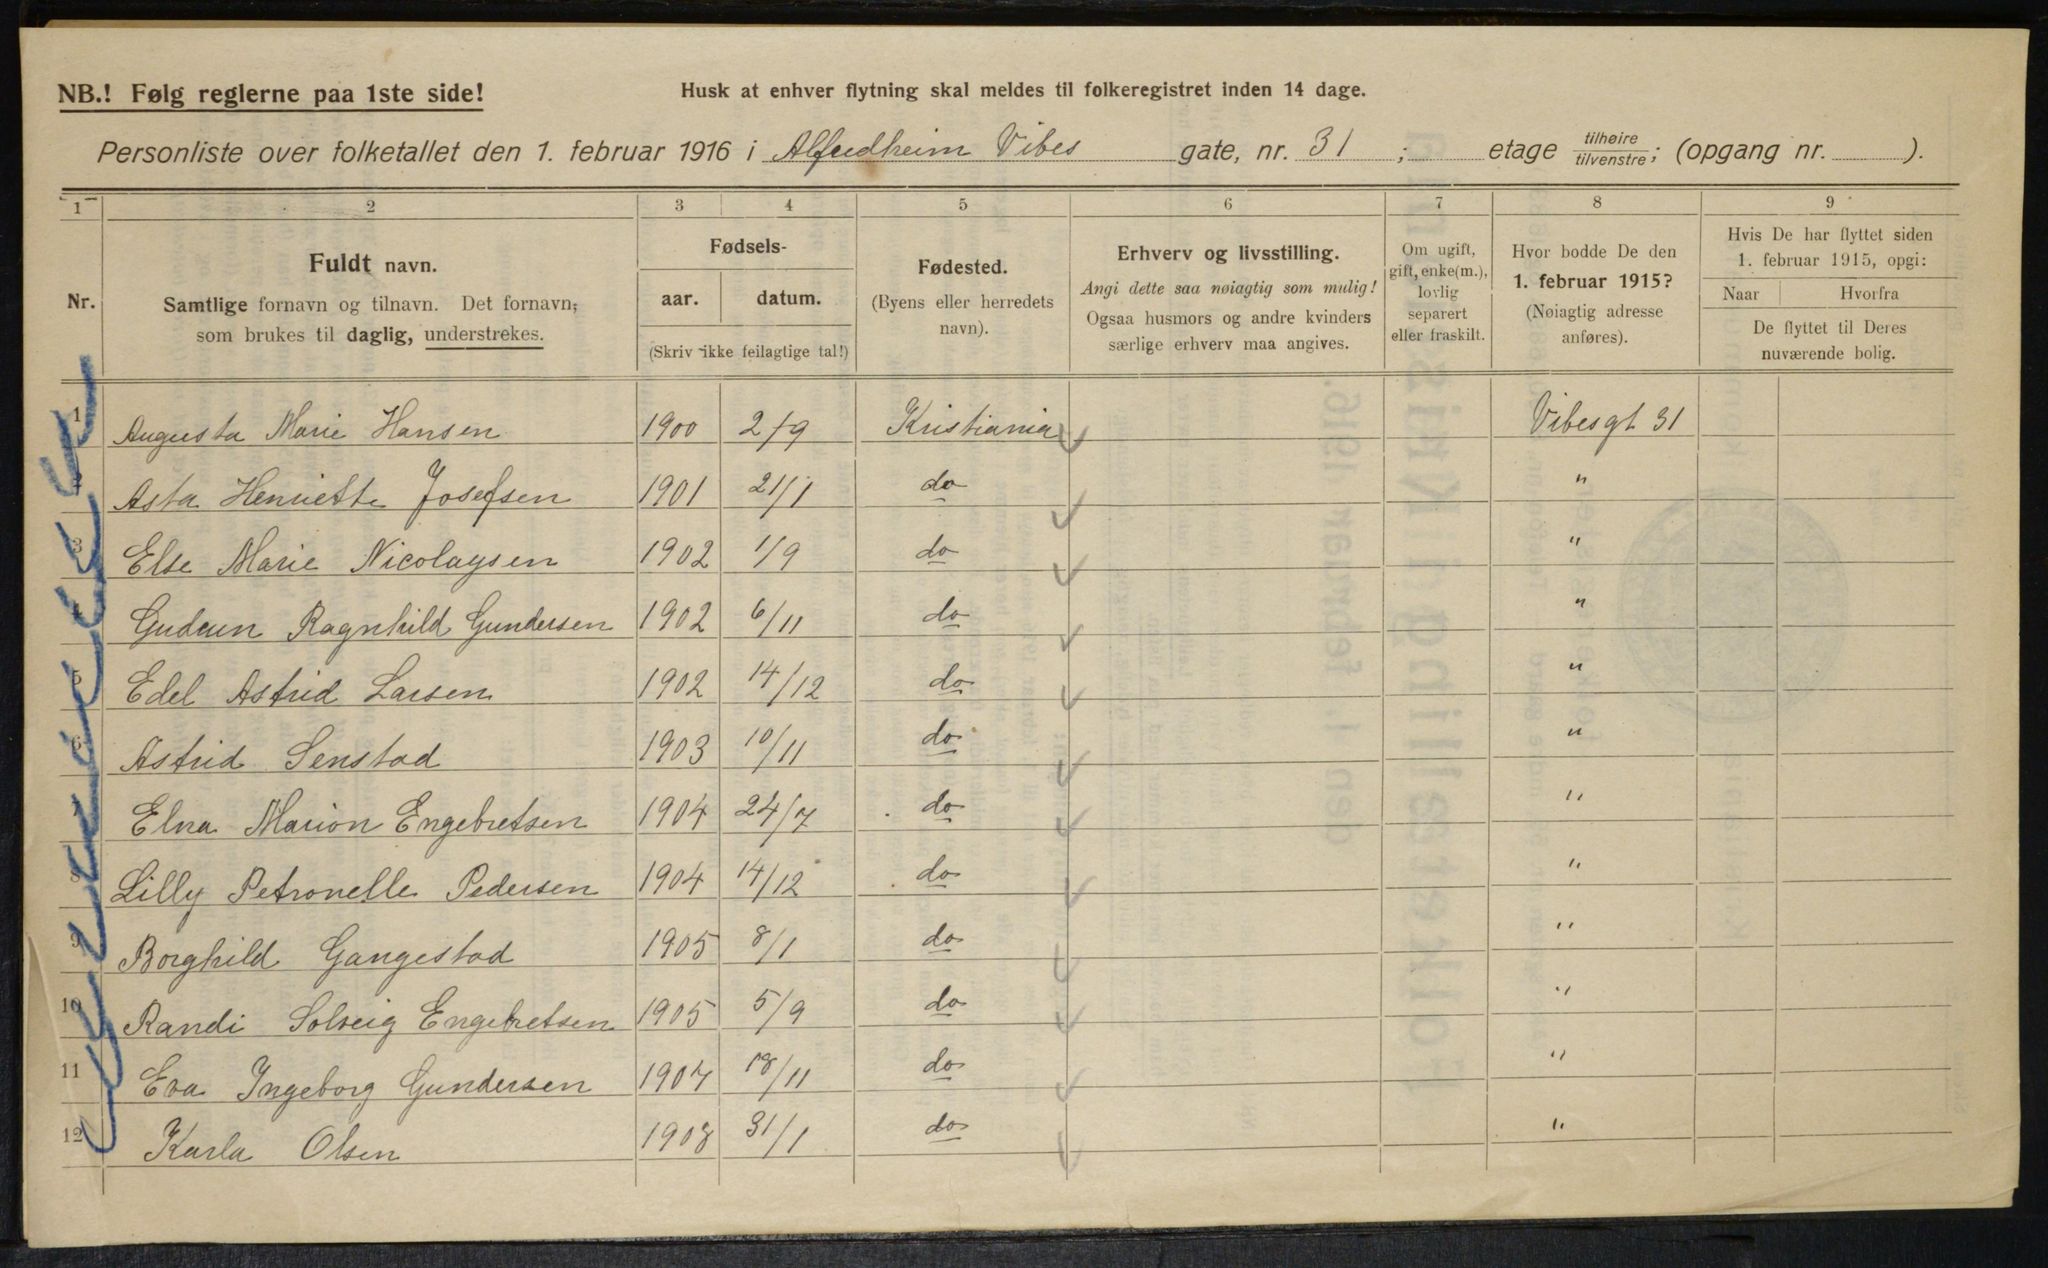 NB.! Følg reglerne paa 1ste side!
Husk at enhver flytning skal meldes til folkeregistret inden 14 dage.
Personliste over folketallet den 1. februar 1916 i Alfredheim Vibes gate, nr. 31 ; etage tilhøire/tilvenstre; (opgang nr. ).
1 2 3 4 5 6 7 8 9
Nr.
Fuldt navn.
Samtlige fornavn og tilnavn. Det fornavn,
som brukes til daglig, understrekes.
Fødsels-
aar. datum.
(Skriv ikke feilagtige tal!)
Fødested.
(Byens eller herredets
navn).
Erhverv og livsstilling.
Angi dette saa nøiagtig som mulig!
Ogsaa husmors og andre kvinders
særlige erhverv maa angives.
Om ugift,
gift, enke(m.),
lovlig
separert
eller fraskilt.
Hvor bodde De den
1. februar 1915?
(Nøiagtig adresse
anføres).
Hvis De har flyttet siden
1. februar 1915, opgi:
Naar Hvorfra
De flyttet til Deres
nuværende bolig.
1 Augusta Marie Hansen 1900 2/9 Kristiania Vibesgt 31
Asta Henriette Josefsen 1901 21/1 do "
3 Else Marie Nicolaysen 1902 1/9 do "
Gudrun Ragnhild Gundersen 1902 6/11 do "
5 Edel Astrid Larsen 1902 14/12 do "
6 Astrid Senstad 1903 10/11 do "
Elna Marion Engebretsen 1904 24/7 do "
8 Lilly Petronelle Pedersen 1904 14/12 do "
9 Borghild Gangestad 1905 8/1 do "
10 Randi Solveig Engebretsen 1905 5/9 do "
11 Eva Ingeborg Gundersen 1907 18/11 do "
12 Karla Olsen 1908 31/1 do "